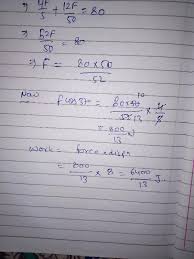 ⇒ 4F/5 + 12F/50 = 80
⇒ 52F/50 = 80
⇒ F = 80 × 50 / 52
Now F cos
= 800/13 N
Work = force × disp
= 800/13 × 8 = 6400/13 J.